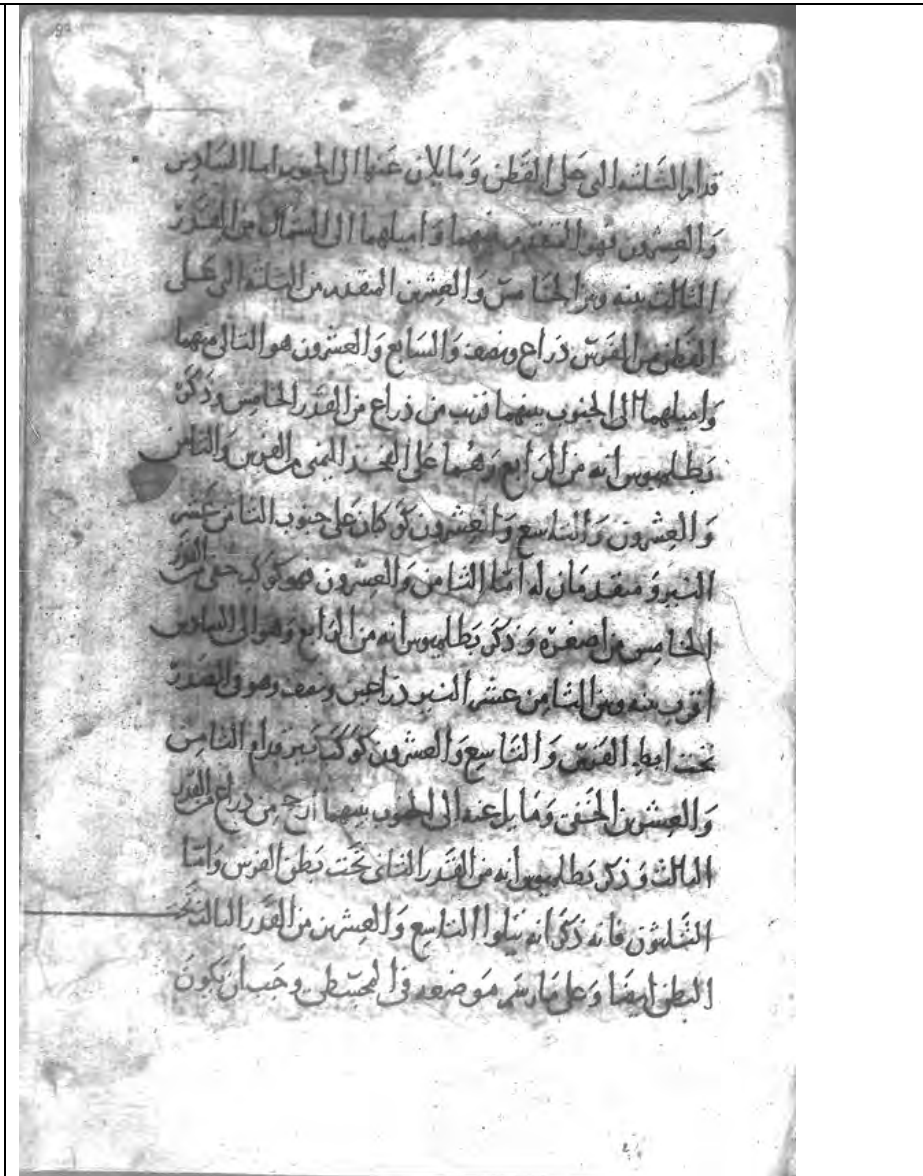 قدام الثلثه التى على القطن وَمايلان عَنها الى الجنوب اما السَادس
وَالعِشرون فهو المتقدم منهما وَاميلهما الى الشمال من القَدر
الثالث بينه وبين الخامس وَالعِشرين المتقدم من الثلثه التى عَلى
القطن من الفَرس ذراع ونصف وَالسَابع وَالعشرون هو التالى منهما
وَاميلهما الى الجنوب بينهما قريب من ذراع من القَدر الخامس وَذكر
بَطلميوس انه من الرَابع وَهُما عَلى الفخذ اليمنى من الفرس وَالثامن
وَالعِشرون وَالتاسع وَالعِشرون كوكبان على جنوب الثامن عَشر
النير وَمتقدمَان له امّا الثامن وَالعشرون فهو كوكب خفى من القدر
الخامس من اصغره وَذكر بَطلميوس انه من الرَابع وَهو الى السادس
اقرب بينه وبين الثامن عشر النير ذراعين ونصف وهو فى الصَدر
تحت ابط الفَرس وَالتَاسع وَالعشرون كوكب نير وراء الثامن
وَالعِشرين الخفى وَمايل عنه الى الجنوب بينهما ارجح من ذراع من القدر
الثالث وَذكر بَطلميوس انه من القَدر الثانى تحت بَطن الفرس وَامّا
الثَلثون فانه ذكر انه يتلوا التاسع وَالعِشرين من القَدر الثالث تحت
البطن ايضًا وَعلى مارسَم مَوضعه فى المجسطى وجَب ان يكونَ